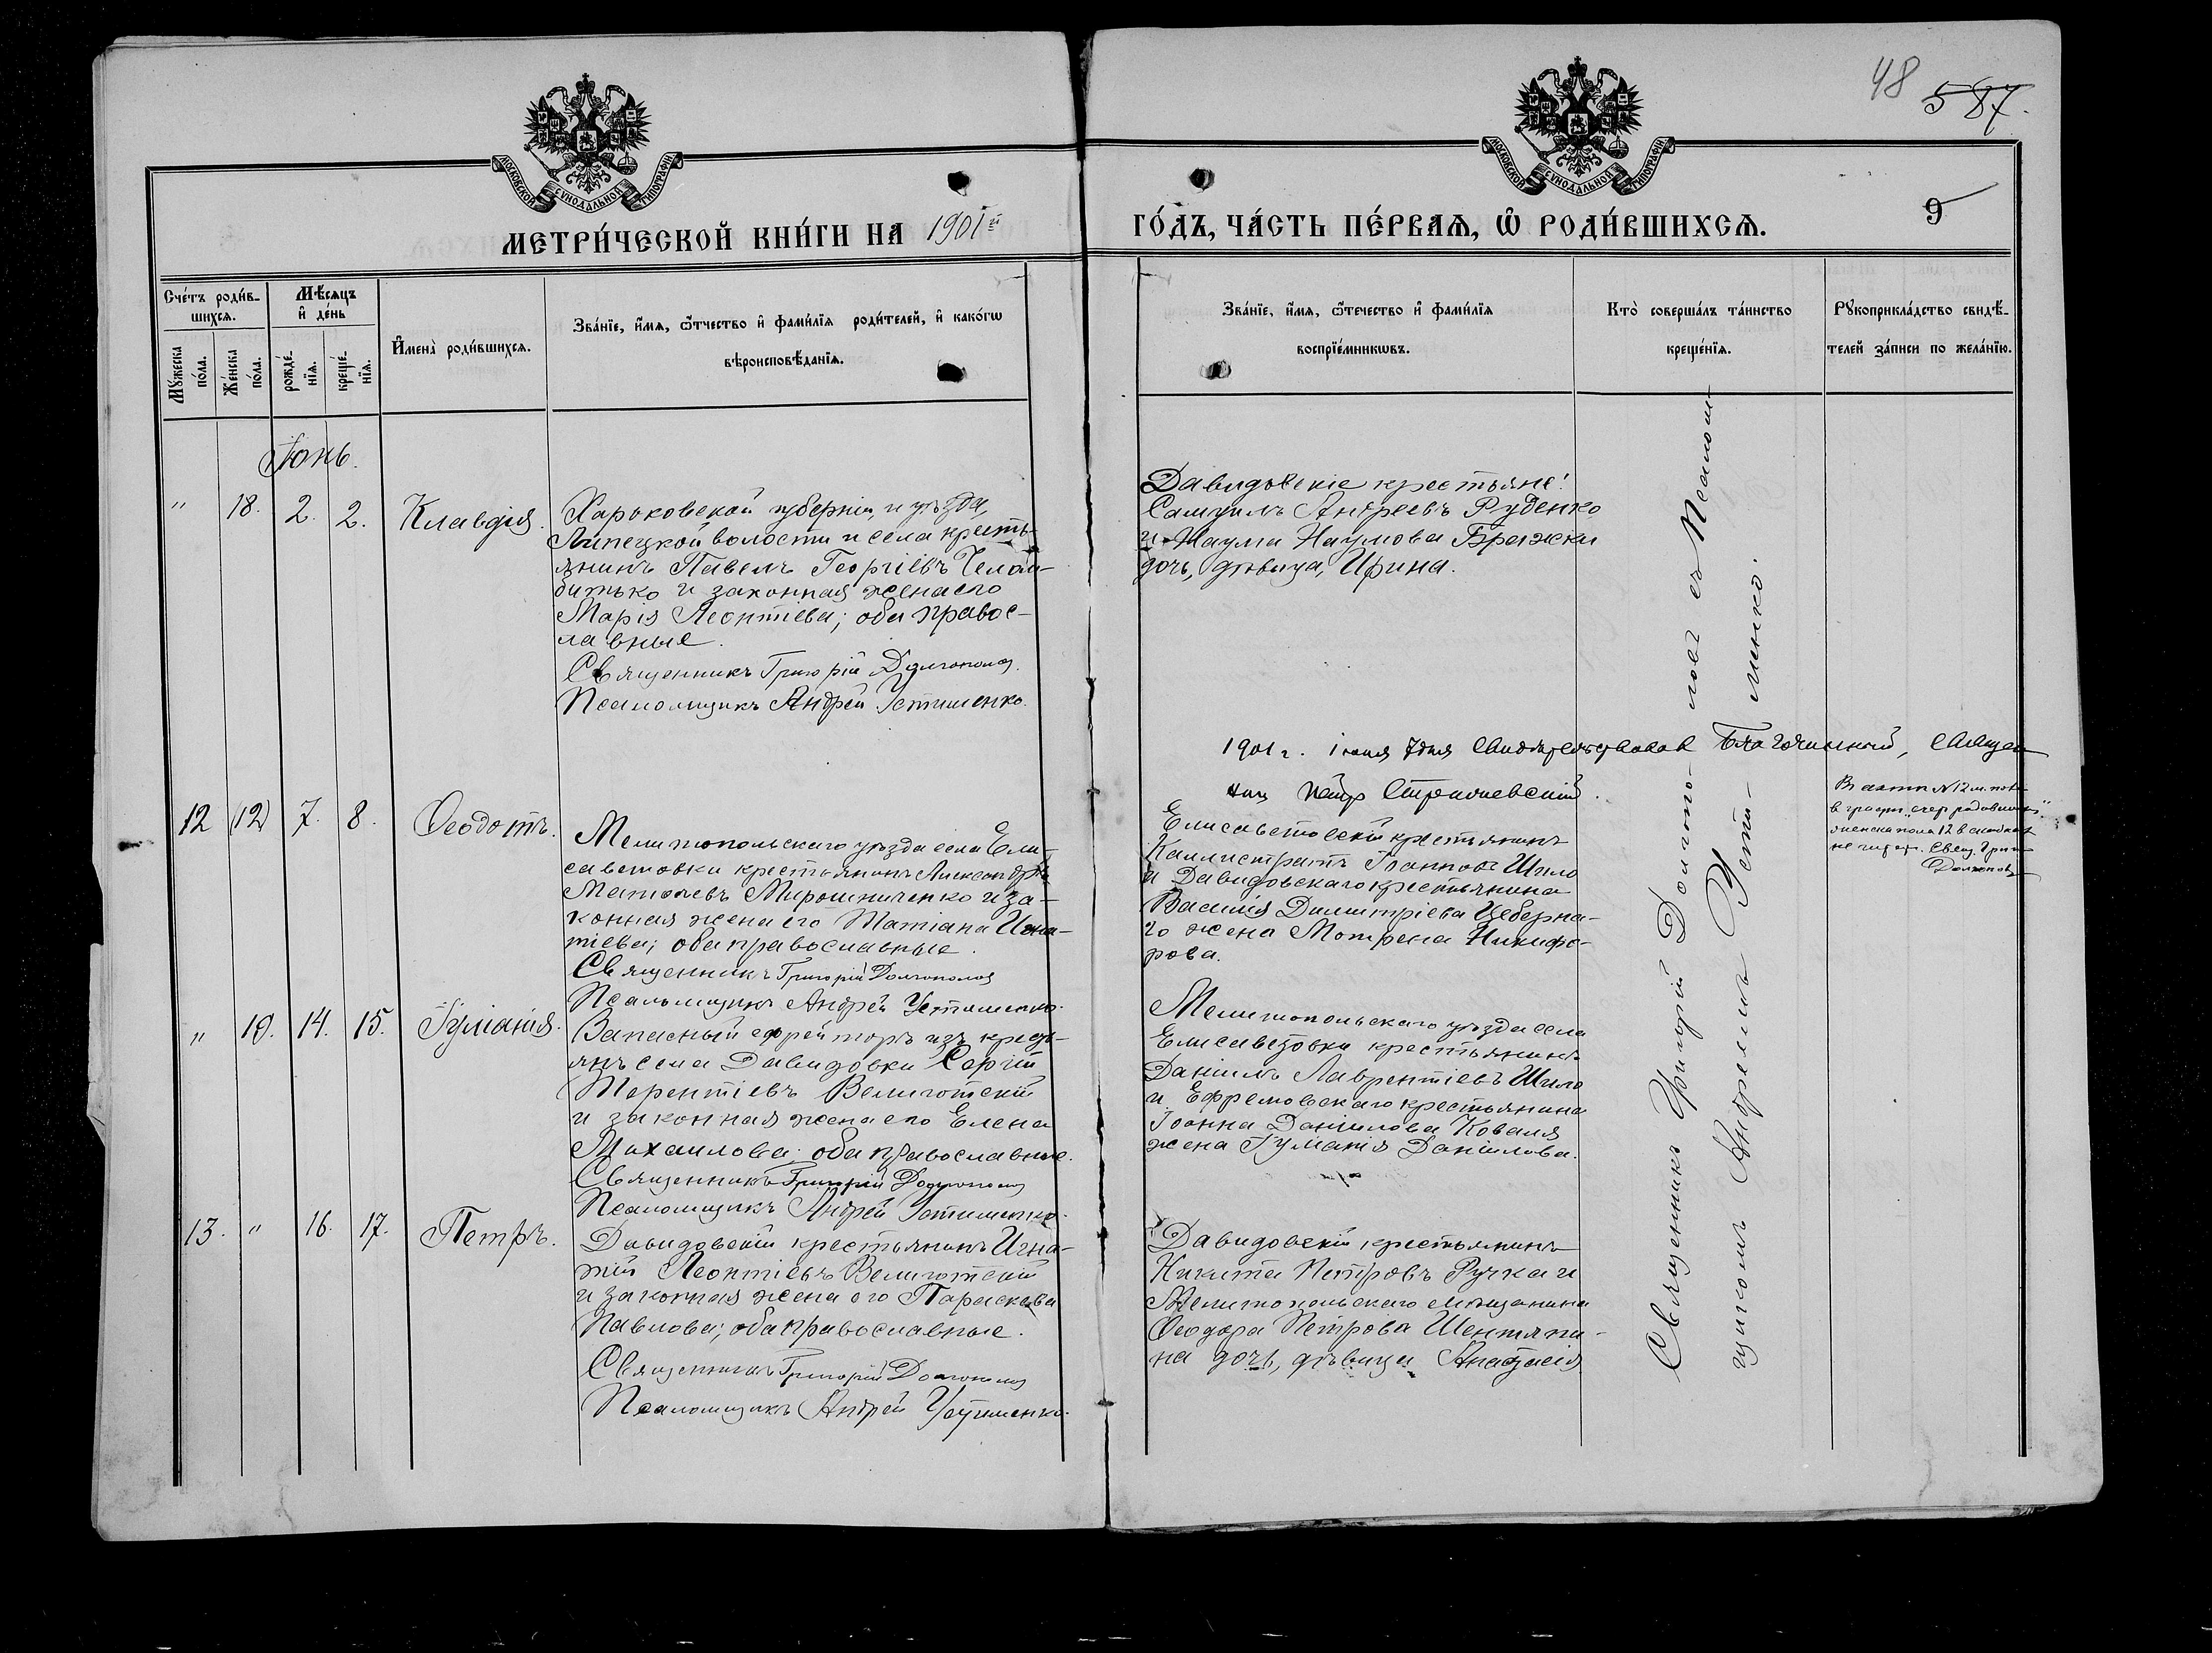 48 587.
МОСКОВСКОЙ СѴНОДАЛЬНОЙ ТИПОГРАФІИ
МОСКОВСКОЙ СѴНОДАЛЬНОЙ ТИПОГРАФІИ
МЕТРИ́ЧЕСКОЙ КНИ́ГИ НА 1901й
ГО́ДЪ, ЧА́СТЬ ПЕ́РВАѦ, Ѡ҆ РОДИ́ВШИХСѦ.
9
Сче́тъ роди́в-
шихсѧ.
Мѣ́сѧцъ
и҆ де́нь
Мꙋ́жеска
по́ла.
Же́нска
по́ла.
рожде́-
нїѧ.
креще́-
нїѧ.
И҆мена̀ роди́вшихсѧ.
Зва́нїе, и҆́мѧ, ѻ҆́тчество и҆ фами́лїѧ роди́телей, и҆ како́гѡ
вѣроисповѣ́данїѧ.
Зва́нїе, и҆́мѧ, ѻ҆́течество и҆ фами́лїѧ
воспрїе́мникѡвъ.
Кто̀ соверша́лъ та́инство
креще́нїѧ.
Рꙋкоприкла́дство свидѣ́-
телей за́писи по жела́нїю.
Іюнь.
" 18. 2. 2. Клавдія.
Харьковской губерніи, и уѣзда,
Липецкой волости и села кресть-
янинъ Павелъ Георгіевъ Челом-
битько и законная жена его
Марія Леонтіева; оба правос-
лавные.
Священникъ Григорій Долгополов
Псаломщикъ Андрей Устименко.
Давидовскіе крестьяне:
Самуилъ Андреевъ Руденко
и Наума Наумова Бражки
дочь, дѣвица, Ирина.
1901 г. іюня 7 дня Свидѣтельствовал Благочинный, Священ
ник Петр
12 (12) 7. 8. Ѳеодотъ.
Мелитопольскаго уѣзда села Ели-
саветовки крестьянинъ Александръ
Матѳѣевъ Мирошниченко и за-
конная жена его Татіана Игна-
тіева; оба православные.
Священникъ Григорій Долгополов
Псаломщикъ Андрей Устименко.
Елисаветовскій крестьянинъ
Каллистратъ Іоанновъ Шило
и Давидовскаго крестьянина
Василія Димитріева Цеберна-
го жена Мотрона Никифо-
рова.
В актѣ № 12 м. пола
в граф. „счет родивших."
женска пола 12 в скобках
не читат. Свящ. Григ
Долгополов
" 19. 14. 15. Іуліанія.
Запасный ефрейторъ изъ кресть-
янъ села Давидовки Сергій
Терентіевъ Велиготскій
и законная жена его Елена
Михаилова; оба православные.
Священникъ Григорій Долгополов
Псаломщикъ Андрей Устименко.
Мелитопольскаго уѣзда села
Елисаветовки крестьянинъ
Даніилъ Лаврентіевъ Шило
и Ефремовскаго крестьянина
Іоанна Даніилова Коваля
жена Іуліанія Даніилова.
13. " 16. 17. Петръ.
Давидовскій крестьянинъ Игна-
тій Леонтіевъ Велиготскій
и законная жена его Параскева
Павлова; оба православные.
Священникъ Григорій Долгополов
Псаломщикъ Андрей Устименко.
Давидовскій крестьянинъ
Никита Петровъ Ручка и
Мелитопольскаго мѣщанина
Ѳеодора Петрова Шентяпи-
на дочь, дѣвица Анастасія.
Священникъ Григорій Долгопо-
ловъ съ Псалом-
щикомъ Андреемъ Усти-
менко.